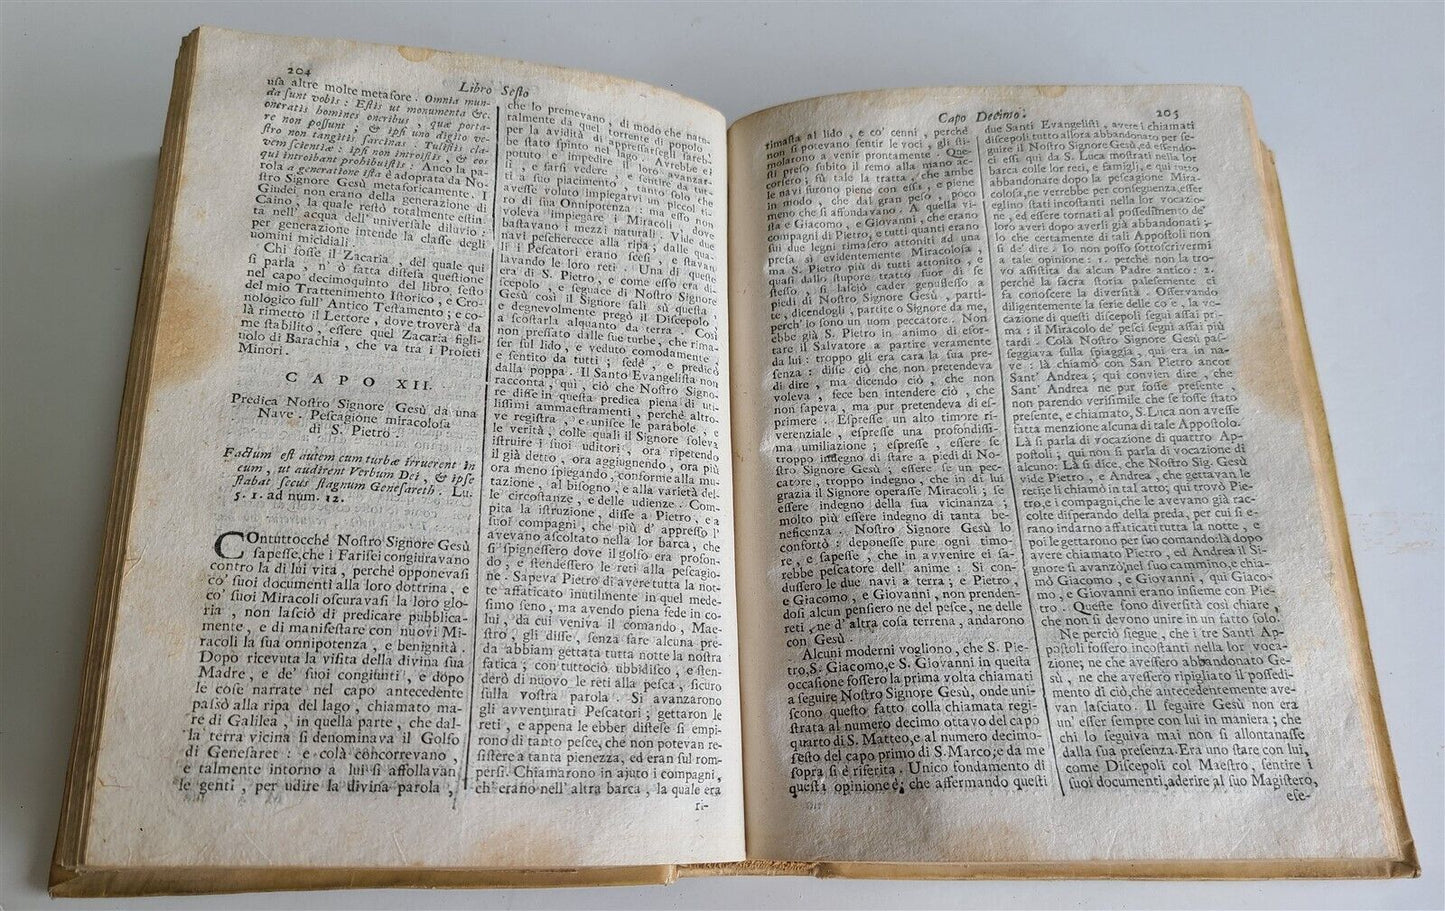 204
Libro Sesto
usa altre molte metafore. Omnia mun-
da sunt vobis: Estis ut monumenta &c.
oneratis homines oneribus, quæ porta-
re non possunt; & ipsi uno digito ve-
stro non tangitis sarcinas. Tulistis cla-
vem scientiæ: ipsi non introistis, & eos
qui introibant prohibuistis. Anco la pa-
rola a generatione ista è adoprata da No-
stro Signore Gesù metaforicamente. I
Giudei non erano della generazione di
Caino, la quale restò totalmente estin-
ta nell' acqua dell' universale diluvio:
per generazione intende la classe degli
uomini micidiali.
Chi fosse il Zacaria, del quale qui
si parla, n' ò fatta distesa questione
nel capo decimoquinto del libro sesto
del mio Trattenimento Istorico, e Cro-
nologico sull' Antico Testamento; e co-
là rimetto il Lettore, dove troverà da
me stabilito, essere quel Zacaria figli-
uolo di Barachia, che va tra i Profeti
Minori.
CAPO XII.
Predica Nostro Signore Gesù da una
Nave. Pescagione miracolosa
di S. Pietro.
Factum est autem cum turbæ irruerent in
eum, ut audirent Verbum Dei, & ipse
stabat secus stagnum Genesareth. Lu.
5. 1. ad num. 12.
COntuttocchè Nostro Signore Gesù
sapesse, che i Farisei congiuravano
contro la di lui vita, perchè opponevasi
co' suoi documenti alla loro dottrina, e
co' suoi Miracoli oscuravasi la loro glo-
ria, non lasciò di predicare pubblica-
mente, e di manifestare con nuovi Mi-
racoli la sua onnipotenza, e benignità.
Dopo ricevuta la visita della divina sua
Madre, e de' suoi congiunti, e dopo
le cose narrate nel capo antecedente
passò alla ripa del lago, chiamato ma-
re di Galilea, in quella parte, che dal-
la terra vicina si denominava il Golfo
di Genesaret: e colà concorrevano,
e talmente intorno a lui si affollavan
le genti, per udire la divina parola,
che lo premevano, di modo che natu-
ralmente da quel torrente di popolo,
per la avidità di appressarsegli sareb-
be stato spinto nel lago. Avrebbe ei
potuto e impedire il loro avanzar-
si, e farsi vedere, e sentire da tut-
ti a suo piacimento, tanto solo che
avesse voluto impiegarvi un piccol ti-
ro di sua Onnipotenza: ma esso non
voleva impiegare i Miracoli, dove
bastavano i mezzi naturali. Vide due
navi pescherecce alla ripa; dalle qua-
li i Pescatori erano scesi, e stavan
lavando le loro reti. Una di queste
era di S. Pietro, e come esso era di-
scepolo, e seguace di Nostro Signore
Gesù così il Signore salì su questa,
e degnevolmente pregò il Discepolo,
a scostarla alquanto da terra. Così
non pressato dalle sue turbe, che rima-
ser sul lido, e veduto comodamente,
e sentito da tutti; sedè, e predicò
dalla poppa. Il Santo Evangelista non
racconta, qui, ciò che Nostro Signo-
re disse in questa predica piena di uti-
lissimi ammaestramenti, perchè altro-
ve registra, e unisce le parabole, e
le verità, colle quali il Signore soleva
istruire i suoi uditori, ora ripetendo
il già detto, ora aggiugnendo, ora più
ora meno spiegando, conforme alla mu-
tazione, al bisogno, e alla varietà del-
le circostanze, e delle udienze. Com-
pita la istruzione, disse a Pietro, e a
suoi compagni, che più d' appresso l'
avevano ascoltato nella lor barca, che
si spignessero dove il golfo era profon-
do; e stendessero le reti alla pescagio-
ne. Sapeva Pietro di avere tutta la not-
te affaticato inutilmente in quel mede-
simo seno, ma avendo piena fede in co-
lui, da cui veniva il comando, Mae-
stro, gli disse, senza fare alcuna pre-
da abbiam gettata tutta notte la nostra
fatica; con tuttociò ubbidisco, e sten-
derò di nuovo le reti alla pesca, sicuro
sulla vostra parola. Si avanzarono
gli avventurati Pescatori; gettaron le
reti, e appena le ebber distese si empi-
rono di tanto pesce, che non potevan re-
sistere a tanta pienezza, ed eran sul rom-
persi. Chiamarono in ajuto i compagni,
ch' erano nell' altra barca, la quale era
ri-
Capo Decimo.
205
rimasta al lido, e co' cenni, perchè
non si potevano sentir le voci, gli sti-
molarono a venir prontamente. Que-
sti preso subito il remo alla mano ac-
corsero; sù tale la tratta, che ambe
le navi furono piene con essa, e piene
in modo, che dal gran peso, poco
meno che si affondavano. A quella vi-
sta e Giacomo, e Giovanni, che erano
compagni di Pietro, e tutti quanti erano
sui due legni rimasero attoniti ad una
presa sì evidentemente Miracolosa,
ma S. Pietro più di tutti attonito, e
quasi dallo stupore tratto fuor di se
stesso, si lasciò cader genuflesso a
piedi di Nostro Signore Gesù, parti-
te, dicendogli, partite o Signore da me,
perch' io sono un uom peccatore. Non
ebbe già S. Pietro in animo di esor-
tare il Salvatore a partire veramente
da lui: troppo gli era cara la sua pre-
senza: disse ciò che non pretendeva
di dire, ma dicendo ciò, che non
voleva, fece ben intendere ciò, che
non sapeva, ma pur pretendeva di es-
primere. Espresse un alto timore ri-
verenziale, espresse una profondissi-
ma umiliazione; espresse, essere se
troppo indegno di stare a piedi di No-
stro Signore Gesù; essere se un pec-
catore, troppo indegno, che in di lui
grazia il Signore operasse Miracoli; se
essere indegno della sua vicinanza;
molto più essere indegno di tanta be-
neficenza. Nostro Signore Gesù lo
confortò: deponesse pure ogni timo-
re, e sapesse, che in avvenire ei sa-
rebbe pescatore dell' anime: Si con-
dussero le due navi a terra; e Pietro,
e Giacomo, e Giovanni, non prenden-
dosi alcun pensiero ne del pesce, ne delle
reti, ne d' altra cosa terrena, andarono
con Gesù.
Alcuni moderni vogliono, che S. Pie-
tro, S. Giacomo, e S. Giovanni in questa
occasione fossero la prima volta chiamati
a seguire Nostro Signore Gesù, onde uni-
scono questo fatto colla chiamata regi-
strata al numero decimo ottavo del capo
quarto di S. Matteo, e al numero decimo-
sesto del capo primo di S. Marco; e da me
sopra si è riferita. Unico fondamento di
questi opinione è; che affermando questi
due Santi Evangelisti, avere i chiamati
discepoli tutto allora abbandonato per se-
guire il Nostro Signore Gesù, ed essendo-
ci essi quì da S. Luca mostrati nella lor
barca colle lor reti, e famigli, e quì tutto
abbandonare dopo la pescagione Mira-
colosa, ne verrebbe per conseguenza, esser
eglino stati incostanti nella lor vocazio-
ne, ed essere tornati al possedimento de'
loro averi dopo averli abbandonati;
lo che certamente di tali Appostoli non
si de' dire. Io non posso sottoscrivermi
a tale opinione: 1. perchè non la tro-
vo assistita da alcun Padre antico: 2.
perchè la sacra storia palesemente ci
fa conoscere la diversità. Osservando
diligentemente la serie delle cose, la vo-
cazione di questi discepoli seguì assai pri-
ma: il Miracolo de' pesci seguì assai più
tardi. Colà Nostro Signore Gesù pas-
seggiava sulla spiaggia, quì era in na-
ve: là chiamò con San Pietro ancor
Sant' Andrea; quì convien dire, che
Sant' Andrea ne pur fosse presente,
non parendo verisimile che se fosse stato
presente, e chiamato, S. Luca non avesse
fatta menzione alcuna di tale Appostolo.
Là si parla di vocazione di quattro Ap-
postoli; quì non si parla di vocazione di
alcuno: Là si dice, che Nostro Sig. Gesù
vide Pietro, e Andrea, che gettavan le
reti; e li chiamò in tal atto; quì trovò Pie-
tro, e i compagni, che le avevano già rac-
colte disperando della preda, per cui si e-
rano indarno affaticati tutta la notte, e
poi le gettarono per suo comando: là dopo
avere chiamato Pietro, ed Andrea il Si-
gnore si avanzò, nel suo cammino, e chia-
mò Giacomo, e Giovanni, quì Giaco-
mo, e Giovanni erano insieme con Pie-
tro. Queste sono diversità così chiare,
che non si devono unire in un fatto solo.
Ne perciò siegue, che i tre Santi Ap-
postoli fossero incostanti nella lor voca-
zione; ne che avessero abbandonato Ge-
sù, ne che avessero ripigliato il possedi-
mento di ciò, che antecedentemente ave-
van lasciato. Il seguire Gesù non era
un' esser sempre con lui in maniera; che
chi lo seguiva mai non si allontanasse
dalla sua presenza. Era uno stare con lui,
come Discepoli col Maestro, sentire i
suoi documenti, aderire al suo Magistero,
ese-